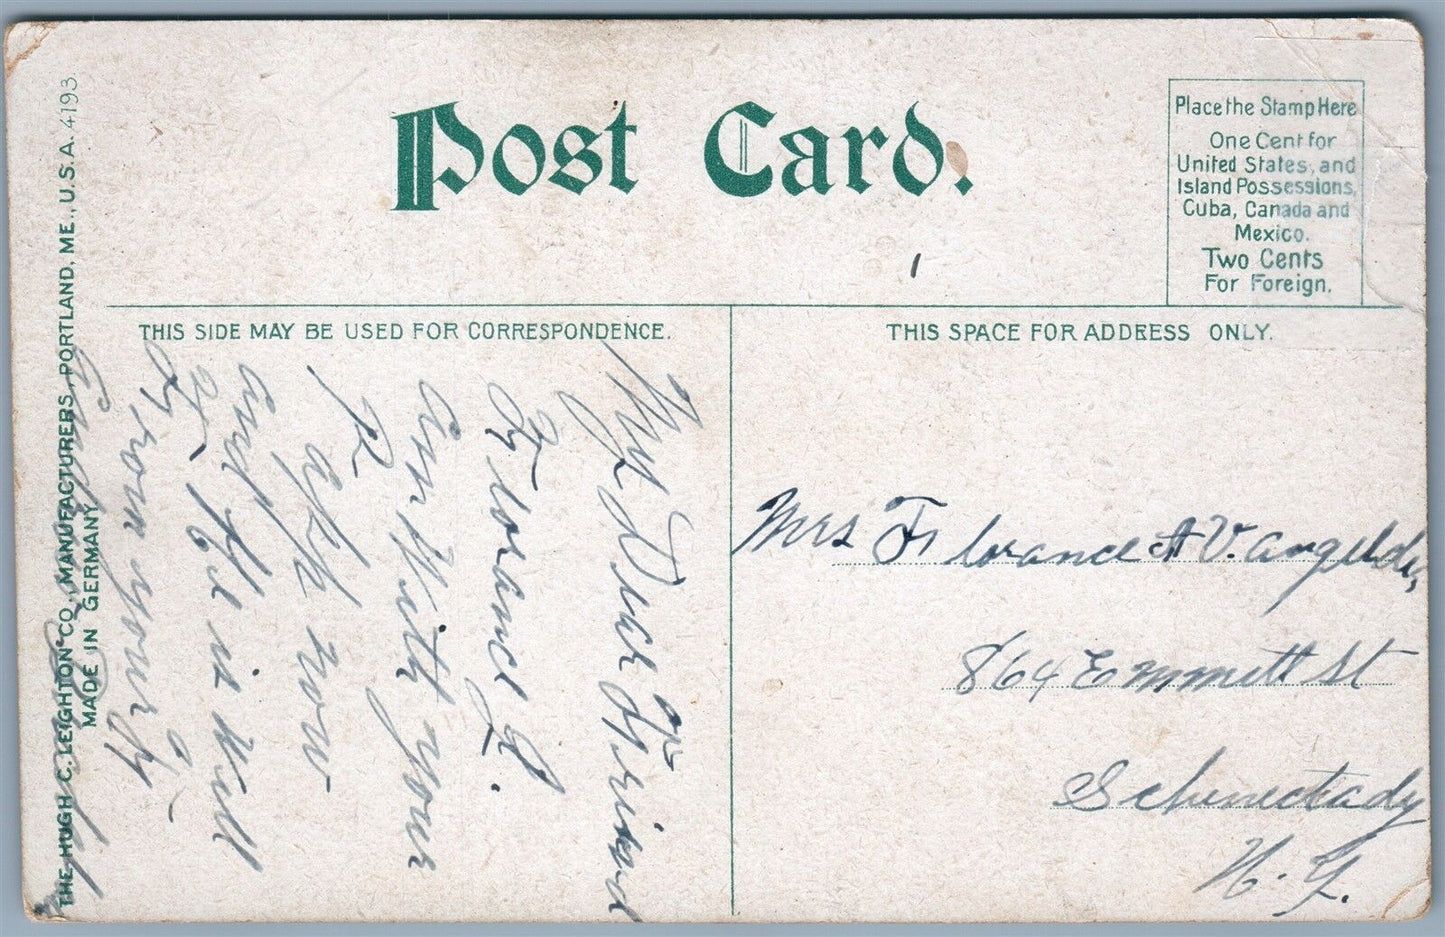 Post Card.
Place the Stamp Here
One Cent for
United States, and
Island Possessions,
Cuba, Canada and
Mexico.
Two Cents
For Foreign.
THIS SIDE MAY BE USED FOR CORRESPONDENCE.
THIS SPACE FOR ADDRESS ONLY.
My Dear Friend
Florance L.
am With your
P
at now
and He is Well
From your
Mrs Florance A V.
864 Emmett St
Schenectady
N. Y.
THE HUGH C. LEIGHTON CO., MANUFACTURERS, PORTLAND, ME., U.S.A. 4193
MADE IN GERMANY